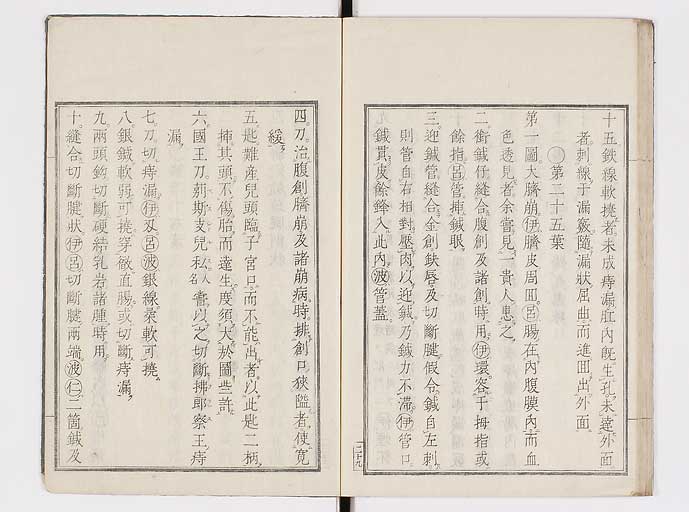 十五鉸線軟撓者未成痔漏肛内既生孔未達外面
者刺線于漏竅隨漏狀屈曲而進回出外面
○第二十五葉
第一圖大臍崩㋑臍皮周回㋺腸在内腹膜内而血
色透見者余嘗見一貴人患之
二銜鍼仔縫合腹創及諸創時用㋑環容于拇指或
餘指㋺管挿鍼眼
三迎鍼管縫合金創缺唇及切斷腱假令鍼自左刺
則管自右相對壓肉以迎鍼乃鍼力不滯㋑管口
鍼貫皮餘鋒入此内㋩管蓋
四刀治腹創臍崩及諸崩病時排創口狹隘者使寬
緩
五匙難産兒頭臨子宮口而不能出者以此匙二柄
挿其頭不傷胎而達生度須大於圖些許
六國王刀莂斯支兒私人名嘗以之切斷拂郎察王痔
漏
七刀切痔漏伊刄呂波銀線柔軟可撓
八銀鍼軟弱可撓穿徹直腸或切斷痔漏
九兩頭鉤切斷硬結乳岩諸腫時用
十縫合切斷腱狀伊呂切斷腱兩端波仁二箇鍼及